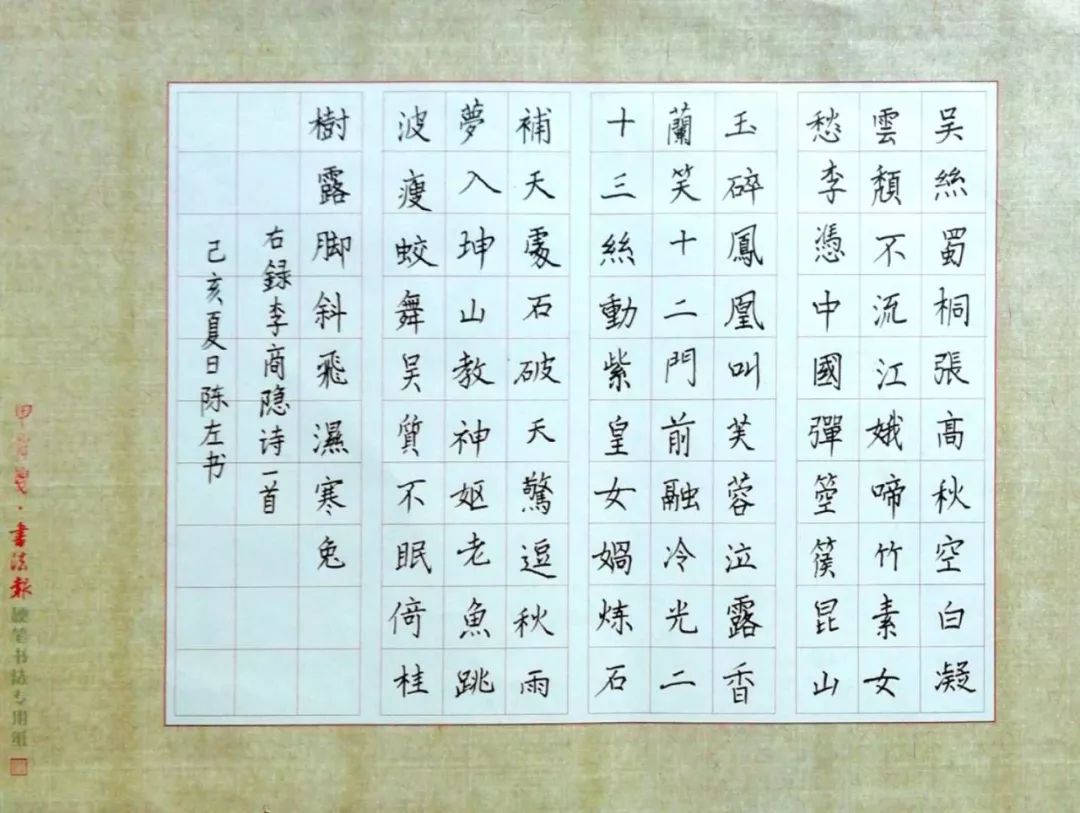 吴絲蜀桐張高秋空白凝
雲頹不流江娥啼竹素女
愁李憑中國彈箜篌昆山
玉碎鳳凰叫芙蓉泣露香
蘭笑十二門前融冷光二
十三絲動紫皇女媧炼石
補天處石破天驚逗秋雨
夢入坤山教神妪老魚跳
波瘦蛟舞吴質不眠倚桂
樹露脚斜飛濕寒兔
右録李商隐诗一首
己亥夏日陈左书
書法報硬笔书法专用纸